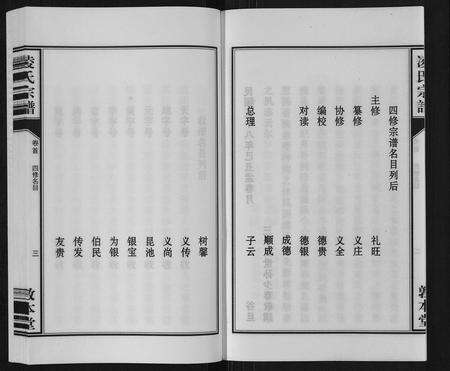 凌氏宗譜
敦本堂
四修宗谱名目列后
主修 礼旺
纂修 义庄
协修 义全
编校 德贵
对读 德银
成德
顺成
总理 子云
凌氏宗譜
卷首 四修名目
三
敦本堂
树馨
义传
义尚
昆池
银宝
为银
伯民
传发
友贵